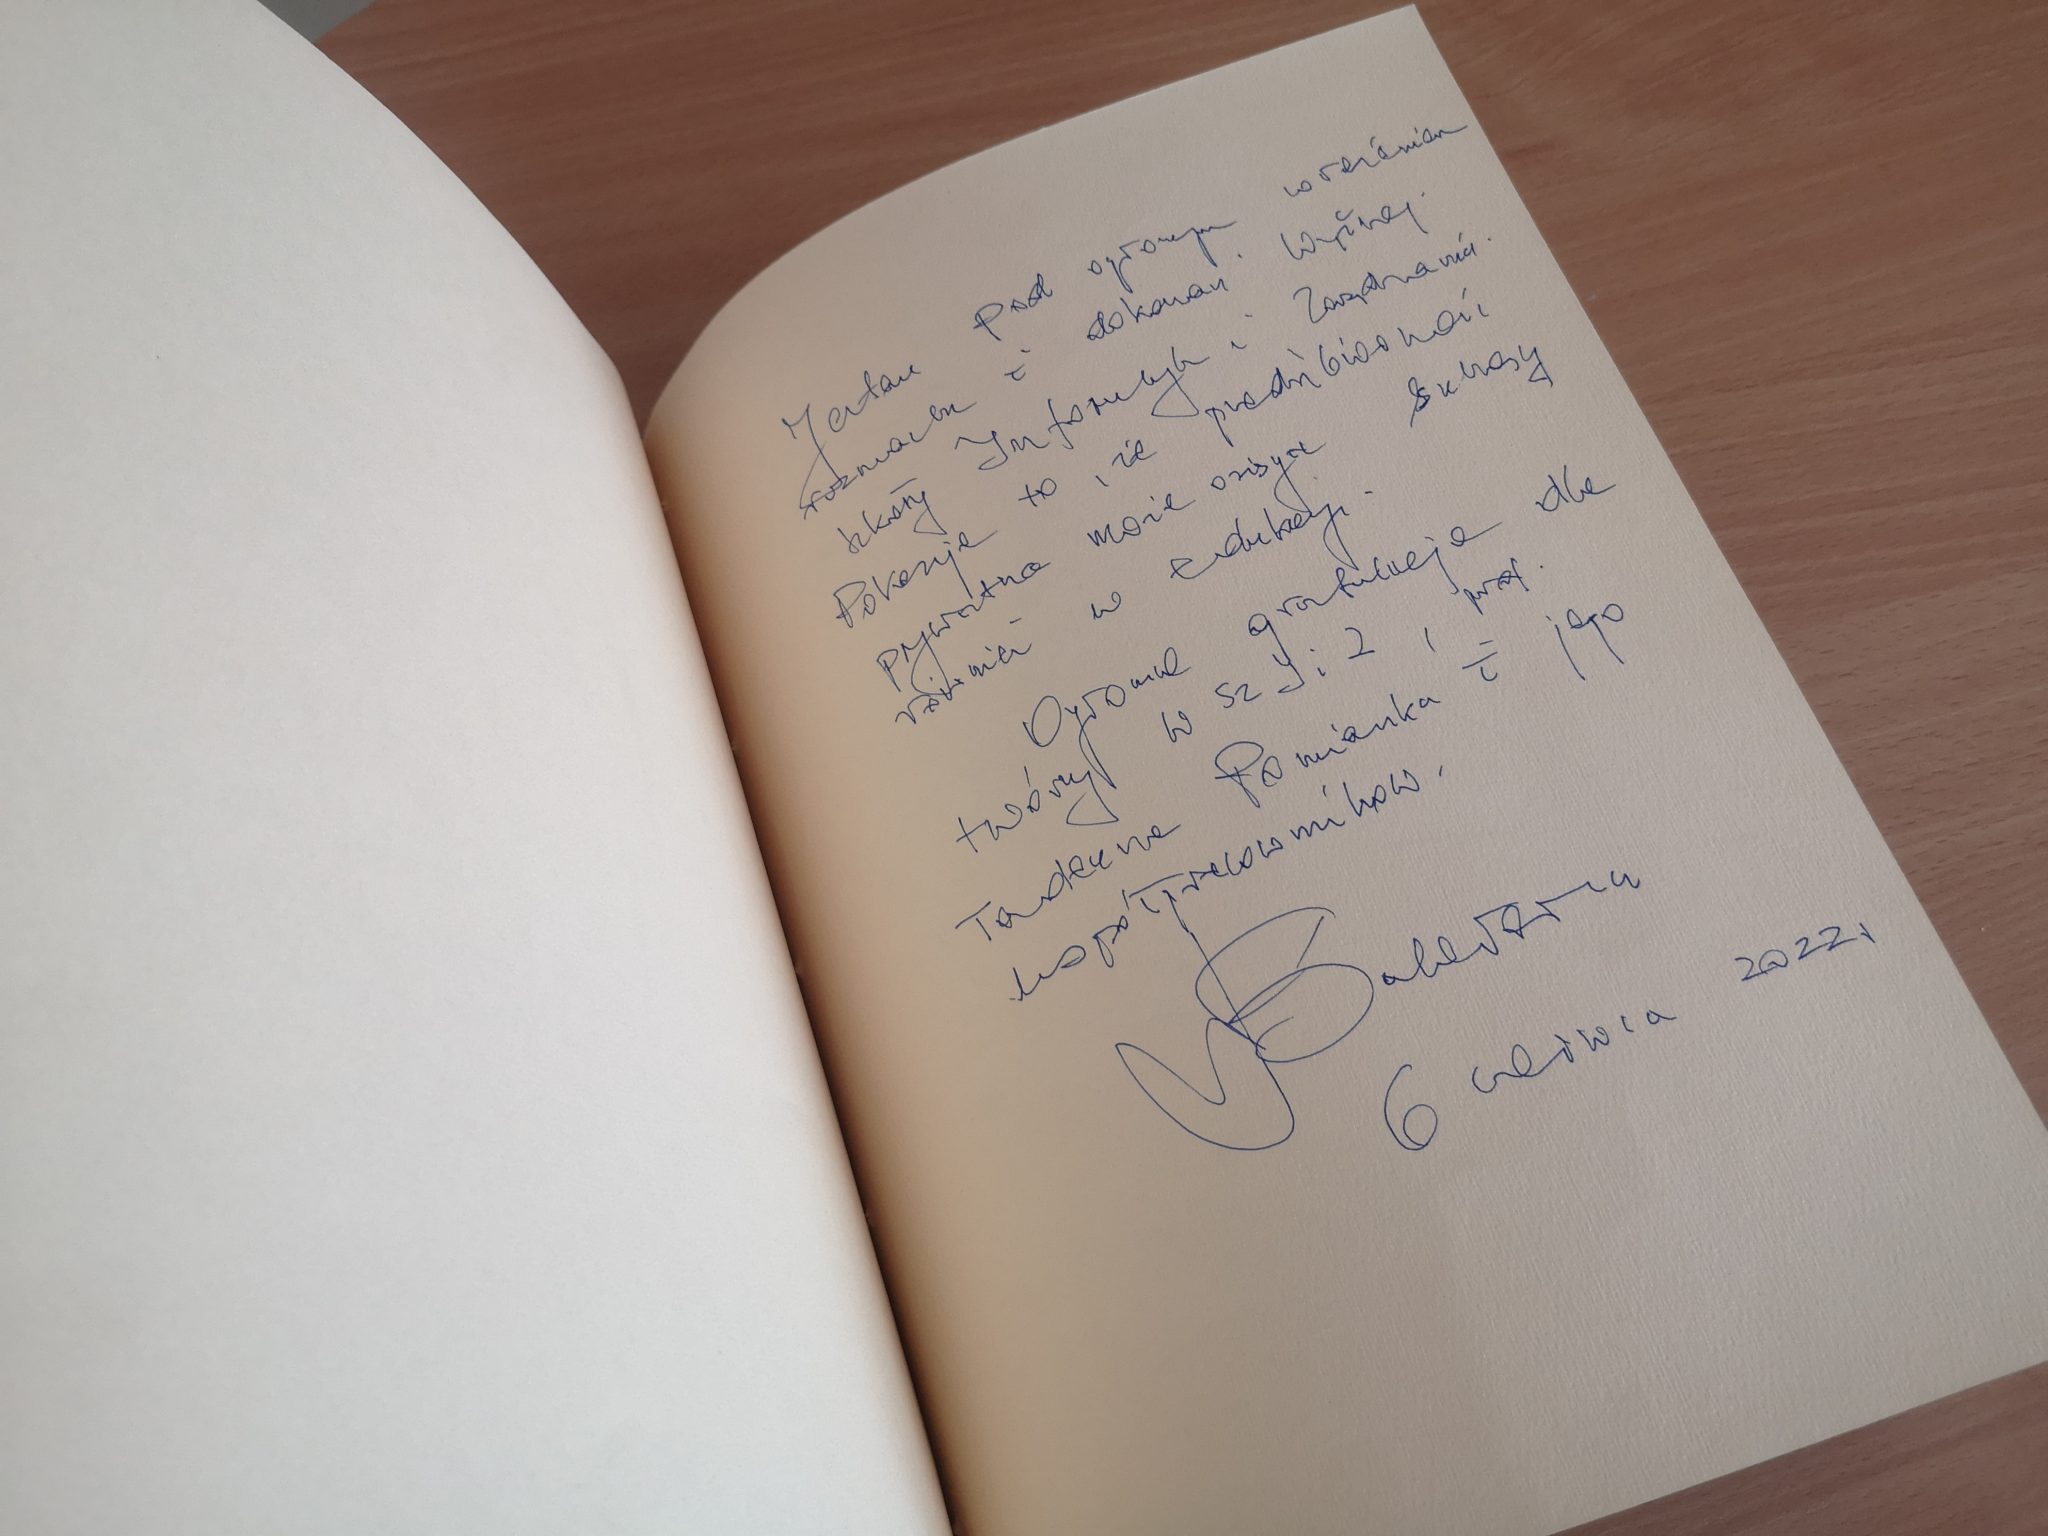 Jestem pod ogromnym wrażeniem
rozmachu i dokonań Wyższej
Szkoły Informatyki i Zarządzania.
Pokazuje to, że przedsiębiorczość
prywatna może osiągać sukcesy
również w edukacji.
Ogromne gratulacje dla
twórcy WSIiZ, prof.
Tadeusza Pomianka i jego
współpracowników.
6 czerwca 2022r.